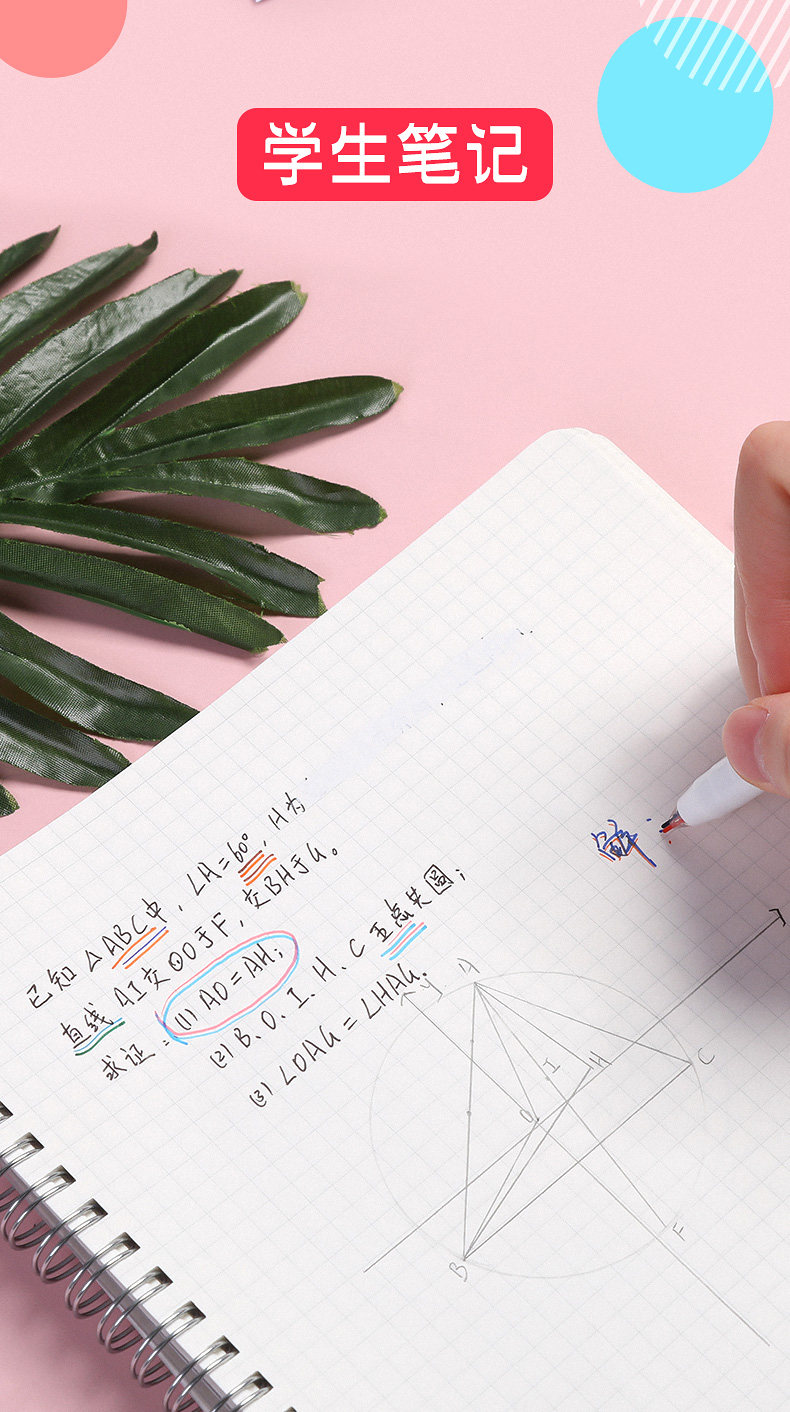 学生笔记
已知 △ABC中，∠A=60°，H为
直线 AI交⊙O于F，交BH于G。
求证：(1) AO=AH；
(2) B、O、I、H、C五点共圆；
(3) ∠OAG=∠HAG.
解：
y
A
I
H
C
O
F
B